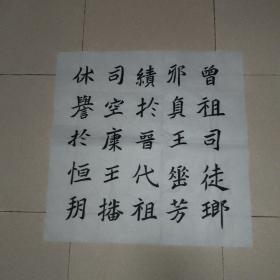 曾祖司徒瑯
邪貞王蜚芳
績於晉代祖
司空康王播
休譽於恒朔